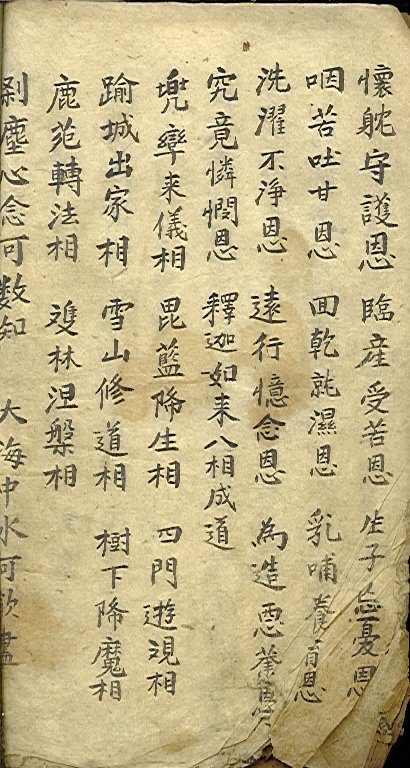 懷躭守護恩 臨産受苦恩 生子忘憂恩
咽苦吐甘恩 囬乾就濕恩 乳哺養育恩
洗濯不淨恩 遠行憶念恩 為造悪業恩
究竟憐憫恩 釋迦如来八相成道
兠率来儀相 毘藍降生相 四門遊観相
踰城出家相 雪山修道相 樹下降魔相
鹿苑轉法相 雙林涅槃相
刹塵心念可數知 大海中水可飲盡